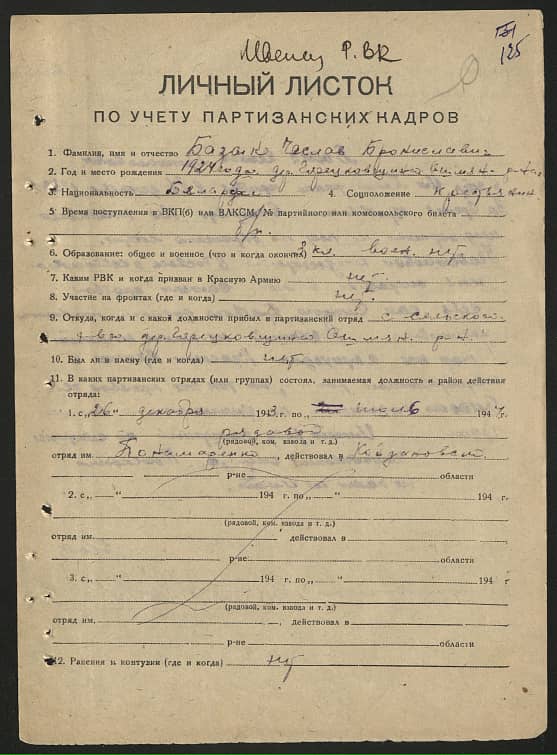 Р.ВК
125
ЛИЧНЫЙ ЛИСТОК
ПО УЧЕТУ ПАРТИЗАНСКИХ КАДРОВ
1. Фамилия, имя и отчество Чеслав Брониславич
2. Год и место рождения 1924 года дер.
3. Национальность 4. Соцположение
5 Время поступления в ВКП(б) или ВЛКСМ, № партийного или комсомольского билета
б/п.
6. Образование: общее и военное (что и когда окончил) 3 кл. воен. нет
7. Каким РВК и когда призван в Красную Армию нет.
8. Участие на фронтах (где и когда) нет.
9. Откуда, когда и с какой должности прибыл в партизанский отряд с сельского
дер.
10. Был ли в плену (где и когда) нет
11. В каких партизанских отрядах (или группах) состоял, занимаемая должность и район действия
отряда:
1. с „26" декабря 1943 г. по июль 194 г.
рядовой
(рядовой, ком. взвода и т. д.)
отряд им. Пономаренко, действовал в
р-не области
2. с „ " 194 г. по „ " 194 г.
(рядовой, ком. взвода и т. д.)
отряд им. действовал в
р-не области
3. с „ " 194 г. по „ " 194 г
(рядовой, ком. взвода и т. д.)
отряд им. , действовал в
р-не области
12. Ранения и контузии (где и когда) нет